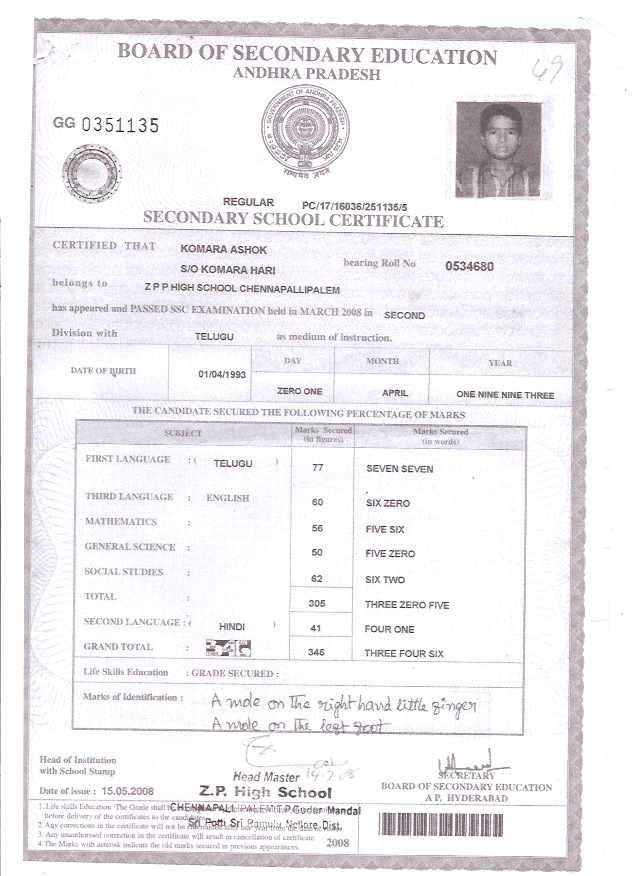 BOARD OF SECONDARY EDUCATION
ANDHRA PRADESH
49
GG 0351135
GOVERNMENT OF ANDHRA PRADESH
सत्यमेव जयते
REGULAR PC/17/16036/251135/5
SECONDARY SCHOOL CERTIFICATE
CERTIFIED THAT KOMARA ASHOK
S/O KOMARA HARI bearing Roll No 0534680
belongs to Z P P HIGH SCHOOL CHENNAPALLIPALEM
has appeared and PASSED SSC EXAMINATION held in MARCH 2008 in SECOND
Division with TELUGU as medium of instruction.
DATE OF BIRTH 01/04/1993 DAY MONTH YEAR
ZERO ONE APRIL ONE NINE NINE THREE
THE CANDIDATE SECURED THE FOLLOWING PERCENTAGE OF MARKS
SUBJECT Marks Secured (in figures) Marks Secured (in words)
FIRST LANGUAGE : ( TELUGU ) 77 SEVEN SEVEN
THIRD LANGUAGE : ENGLISH 60 SIX ZERO
MATHEMATICS : 56 FIVE SIX
GENERAL SCIENCE : 50 FIVE ZERO
SOCIAL STUDIES : 62 SIX TWO
TOTAL : 305 THREE ZERO FIVE
SECOND LANGUAGE : ( HINDI ) 41 FOUR ONE
GRAND TOTAL : 346 THREE FOUR SIX
Life Skills Education : GRADE SECURED :
Marks of Identification : A mole on the right hand little finger
A mole on the left foot
Head of Institution
with School Stamp
Head Master
SECRETARY
Date of issue : 15.05.2008 Z.P. High School BOARD OF SECONDARY EDUCATION
A P, HYDERABAD
1. Life skills Education :The Grade shall
CHENNAPALLIPALEM T.P.Gudur Mandal
before delivery of the certificates to the candidates.
Sri Potti Sri Ramulu Nellore Dist.
2. Any corrections in the certificate will not be entertained after one year from the date of
3. Any unauthorised correction in the certificate will result in cancellation of certificate.
4. The Marks with asterisk indicate the old marks secured in previous appearances. 2008